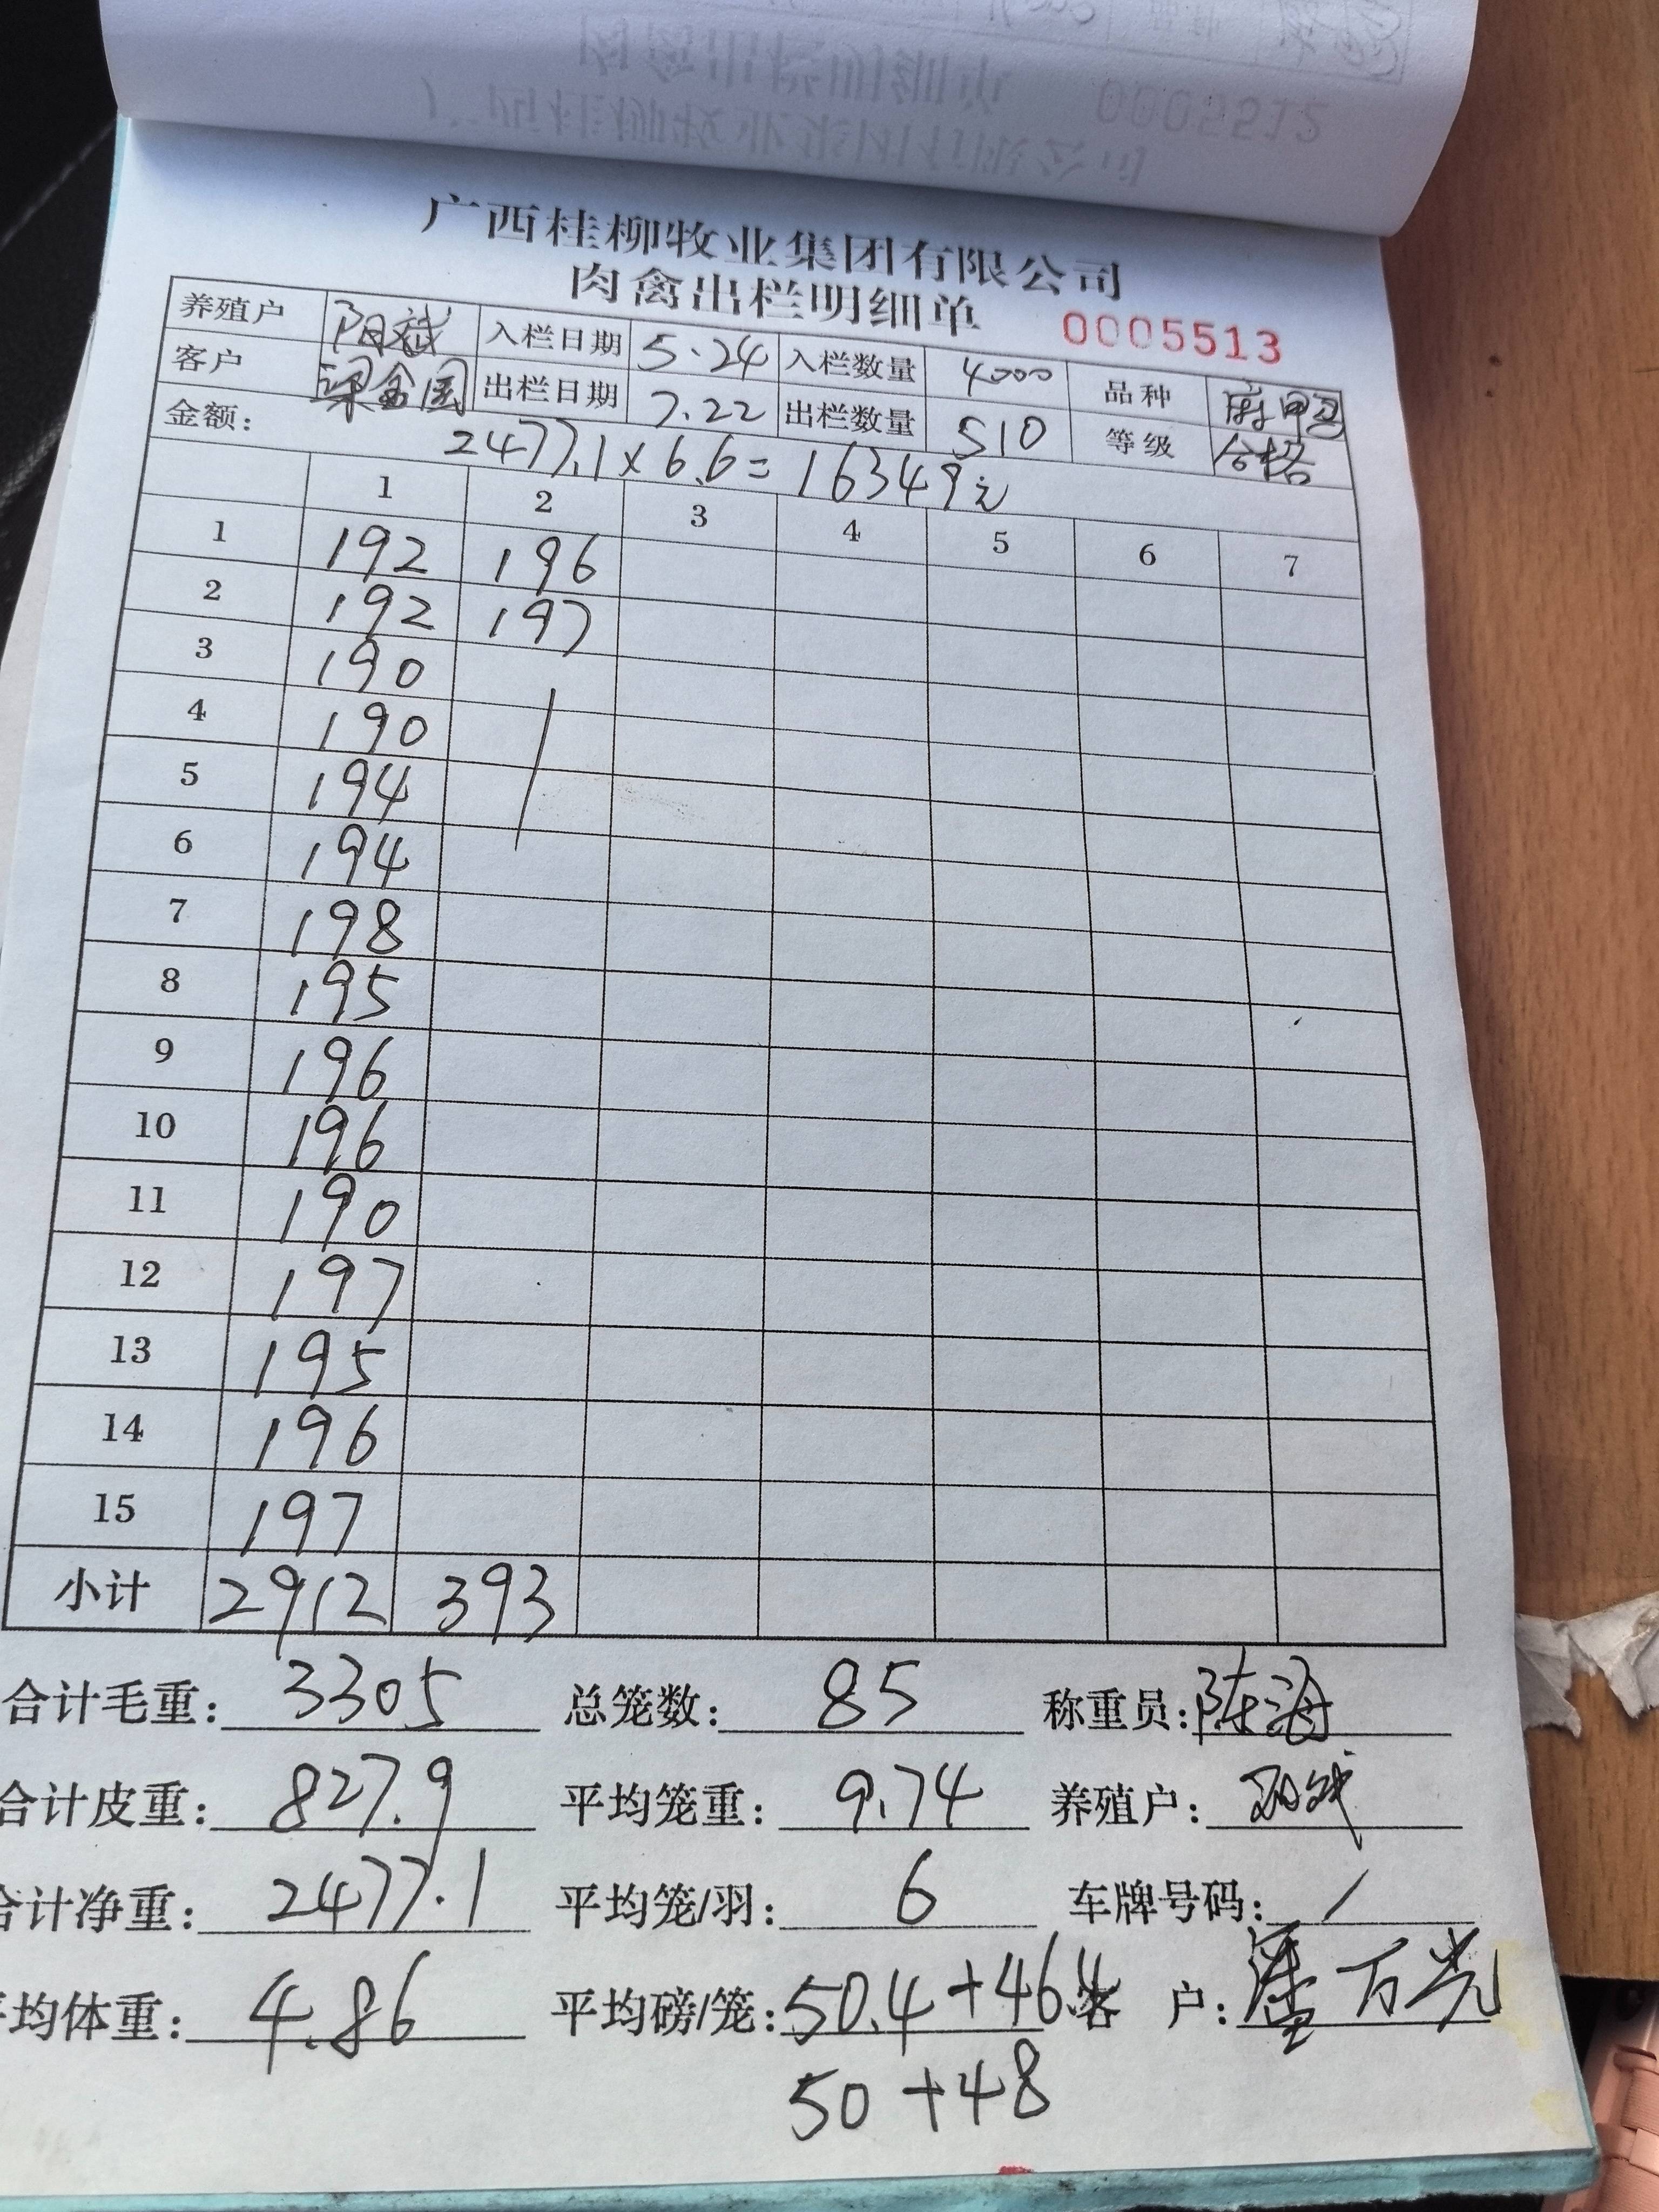 广西桂柳牧业集团有限公司
肉禽出栏明细单 0005513
养殖户 阳斌 入栏日期 5.24 入栏数量 4000 品种
客户 梁金国 出栏日期 7.22 出栏数量 510 等级 合格
金额: 2477.1×6.6=16349元
1 2 3 4 5 6 7
1 192 196
2 192 197
3 190
4 190
5 194
6 194
7 198
8 195
9 196
10 196
11 190
12 197
13 195
14 196
15 197
小计 2912 393
合计毛重: 3305 总笼数: 85 称重员: 陈海
合计皮重: 827.9 平均笼重: 9.74 养殖户: 阳斌
合计净重: 2477.1 平均笼/羽: 6 车牌号码: /
均体重: 4.86 平均磅/笼: 50.4+46.4 客 户: 潘万光
50+48